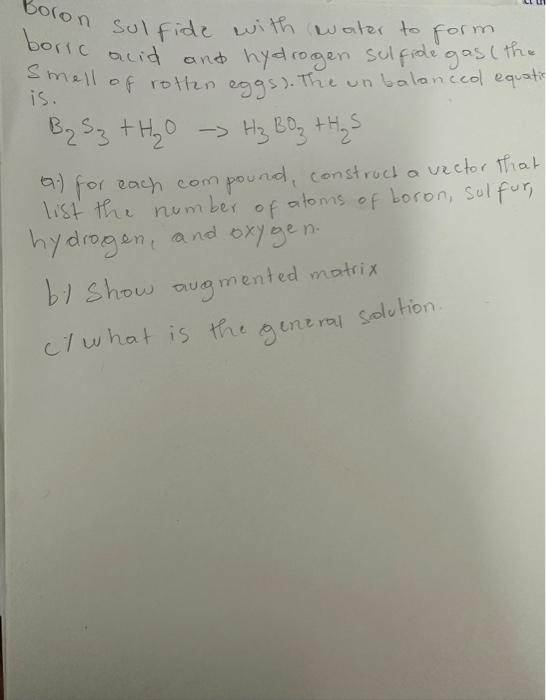 Boron sulfide with water to form
boric acid and hydrogen sulfide gas (the
smell of rotten eggs). The unbalanced equatio
is.
B₂S₃ + H₂O → H₃BO₃ + H₂S
a.) for each compound, construct a vector that
list the number of atoms of boron, sulfur,
hydrogen, and oxygen.
b) Show augmented matrix
c) what is the general solution.